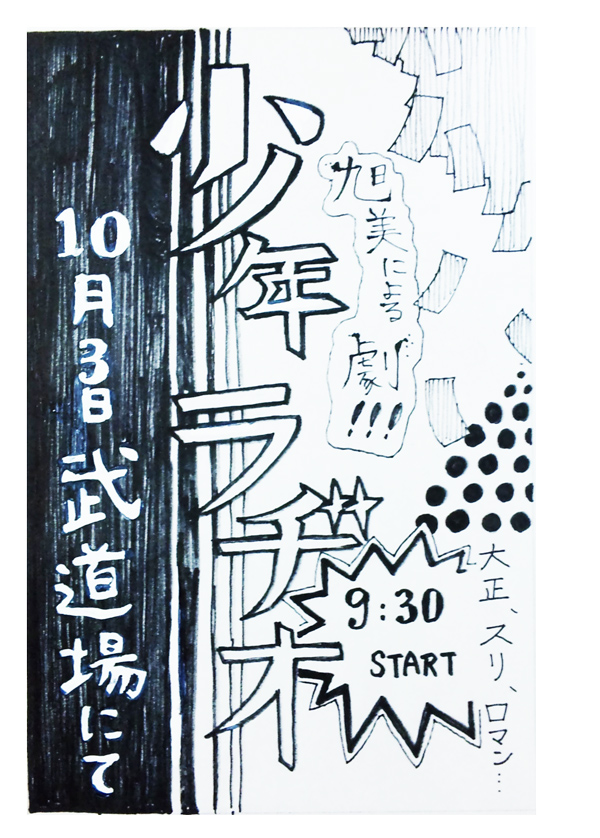 少年ラヂオ
旭美による劇!!!
10月3日武道場にて
9:30
START
大正、スリ、ロマン…